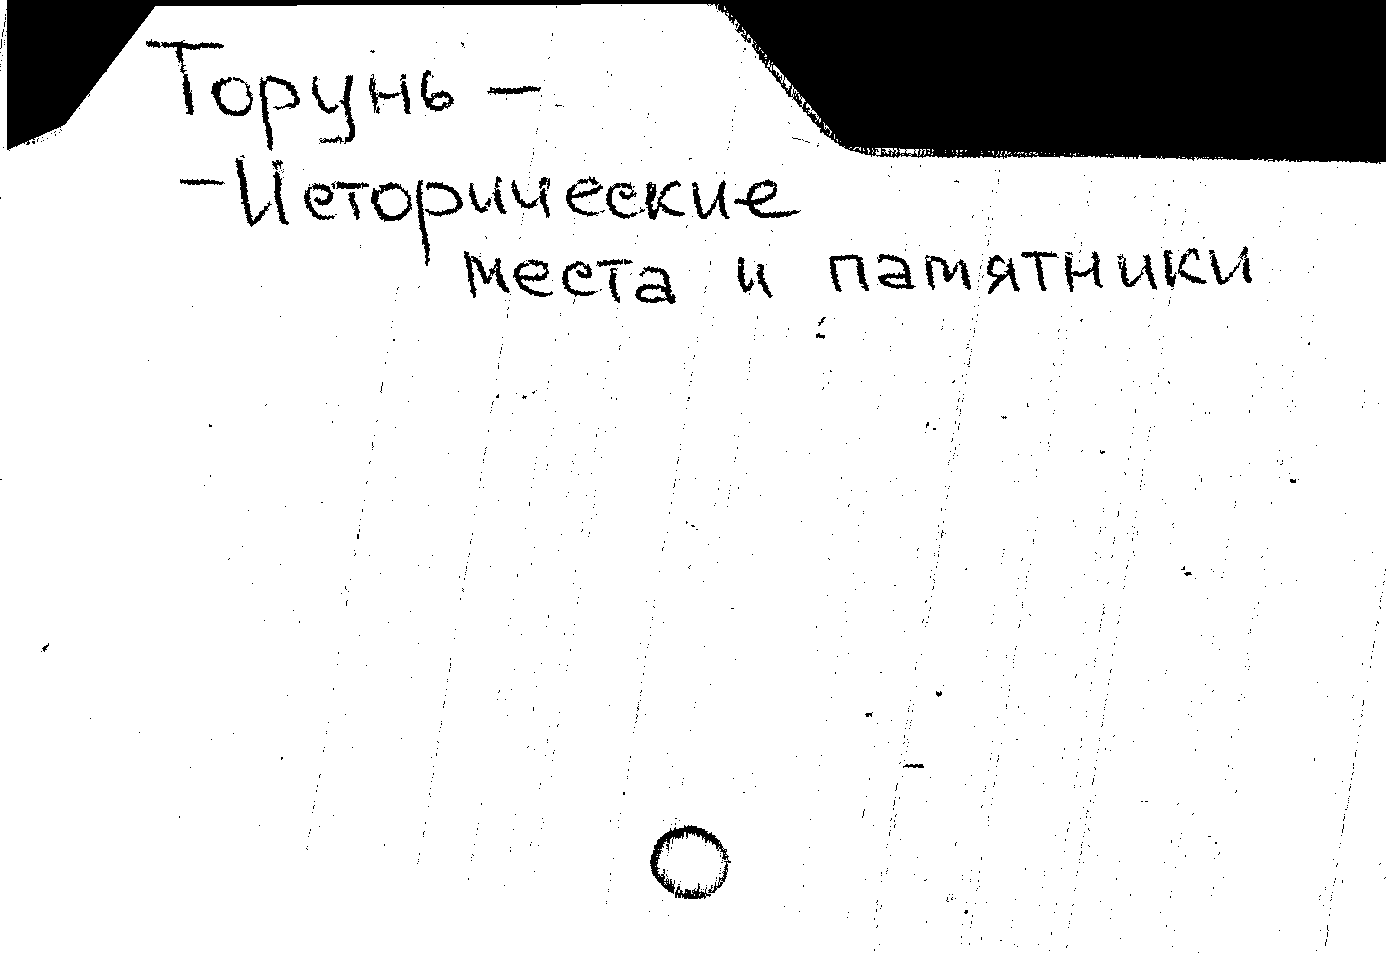 Торунь -
- Исторические
места и памятники